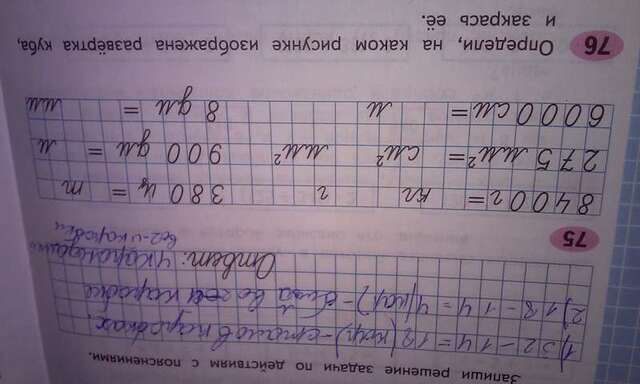 Запиши решение задачи по действиям с пояснениями.
1) 32 - 14 = 18 (кар) - стало в коробках.
2) 18 - 14 = 4 (кар) - было во 2-ой коробке
Ответ: 4 карандаша
во 2-й коробке
75
8400г = кг г 380 ц = т
275 мм² = см² мм² 900 дм = м
6000 см = м 8 дм = мм
76 Определи, на каком рисунке изображена развёртка куба,
и закрась её.